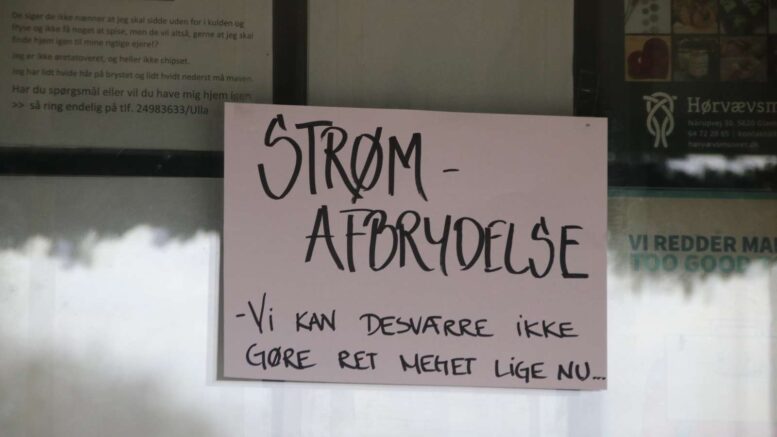 De siger de ikke nænner at jeg skal sidde uden for i kulden og
fryse og ikke få noget at spise, men de vil altså, gerne at jeg skal
finde hjem igen til mine rigtige ejere?
Jeg er ikke øretatoveret, og heller ikke chipset.
Jeg har lidt hvide hår på brystet og lidt hvidt nederst må maven.
Har du spørgsmål eller vil du have mig hjem igen
>> så ring endelig på tlf. 24983633/Ulla
STRØM-
AFBRYDELSE
-Vi KAN DESVÆRRE iKKE
GØRE RET MEGET LIGE NU...
Hørvævsm
64 72 28 65
VI REDDER MA
TOO GOOD